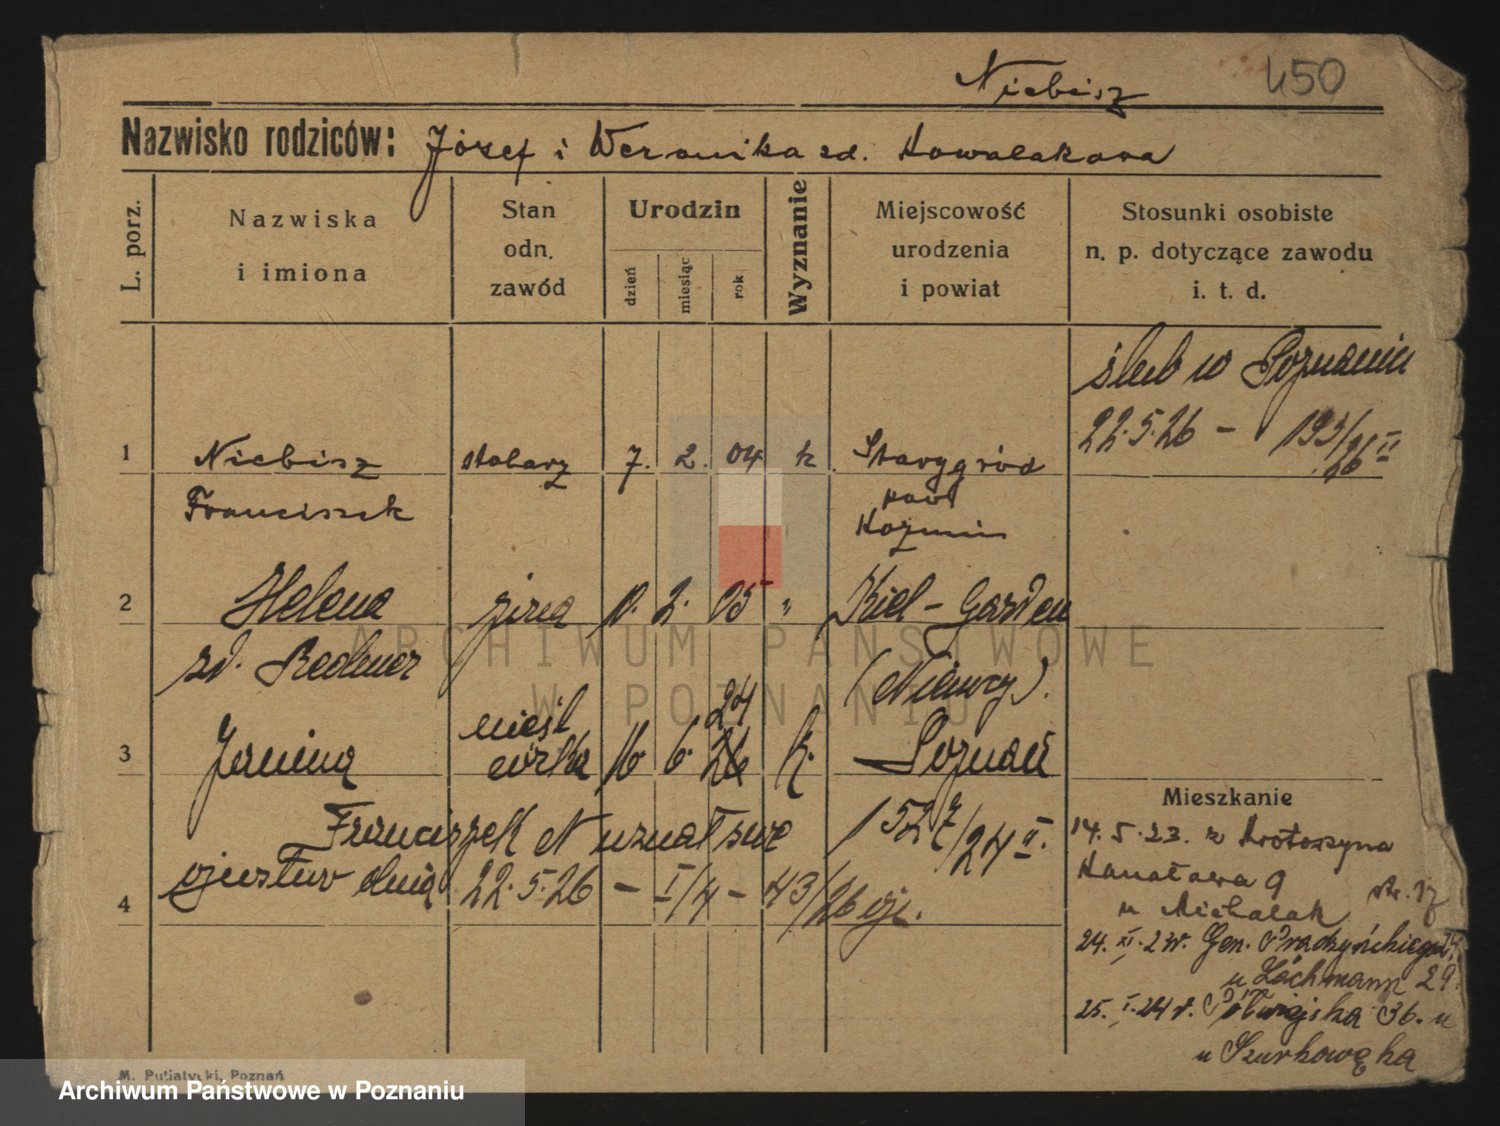 Niebisz 450
Nazwisko rodziców: Józef i Weronika zd. Kowalakowa
L. porz.
Nazwiska
i imiona
Stan
odn.
zawód
Urodzin
dzień
miesiąc
rok
Wyznanie
Miejscowość
urodzenia
i powiat
Stosunki osobiste
n. p. dotyczące zawodu
i. t. d.
ślub w Poznaniu
22.5.26 - 193/26 II
1 Niebisz stolarz 7. 2. 04 k. Starygród
Franciszek pow
Koźmin
2 Helena żona 2. 05 " Kiel - Garden
zd. (Niemcy).
nieśl 24
3 Janina córka 16 6. 26 k. Poznań
Franciszek N uznał swe 1527/24 II.
ojcostwo dnia 22.5.26 - I/4 - 43/26 oj.
4
Mieszkanie
14. 5. 23. z Krotoszyna
Kanałowa 9
u Michalak
24. XI. 23r. Gen. Prądzyńskiego
u Lachmann 29.
25. I. 24 r. Półwiejska 36.
u Szurkowęka
M. Putiatycki, Poznań
ARCHIWUM PAŃSTWOWE
W POZNANIU
Archiwum Państwowe w Poznaniu